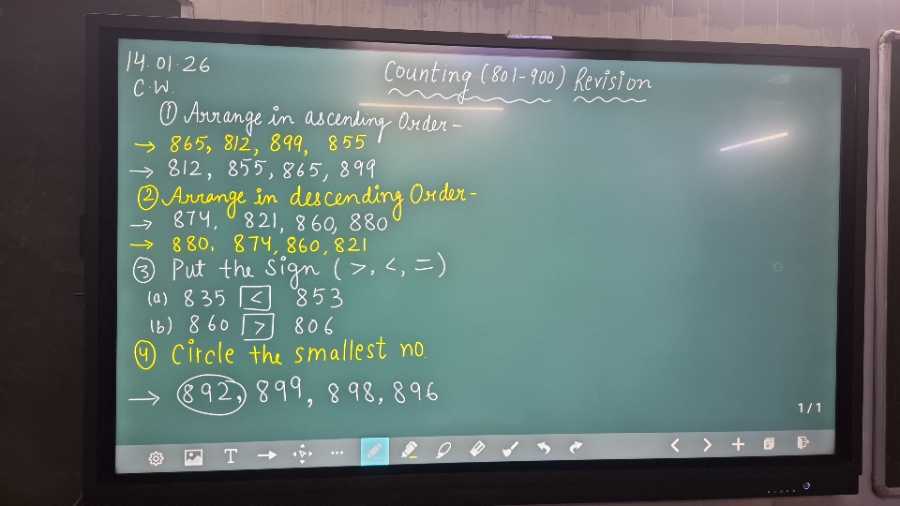 14.01.26
Counting (801-900) Revision
C.W.
① Arrange in ascending Order-
→ 865, 812, 899, 855
→ 812, 855, 865, 899
② Arrange in descending Order-
→ 874, 821, 860, 880
→ 880, 874, 860, 821
③ Put the Sign ( >, <, =)
(a) 835 < 853
(b) 860 > 806
④ Circle the smallest no.
→ 892, 899, 898, 896
1/1
T